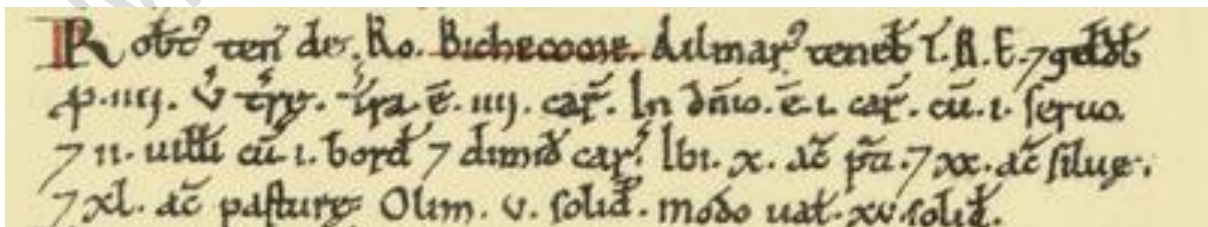 Rotbt᷒ ten̄ de. Ro. Bichecome. Ailmar᷒ teneb̄ T. R. E. ⁊ geldb̄
ꝑ. iiij. v̊ tr̄ę. T̄ra. ē. iiij. car̄. In dn̄io. ē. i. car̄. cū. i. seruo.
⁊ ii. uilłi cū. i. bord̄ ⁊ dimid̄ car̄. Ibi. x. ac̄ p̄ti. ⁊ xx. ac̄ siluę.
⁊ xl. ac̄ pasturę. Olim. v. solid̄. modo ual̄. xv. solid̄.